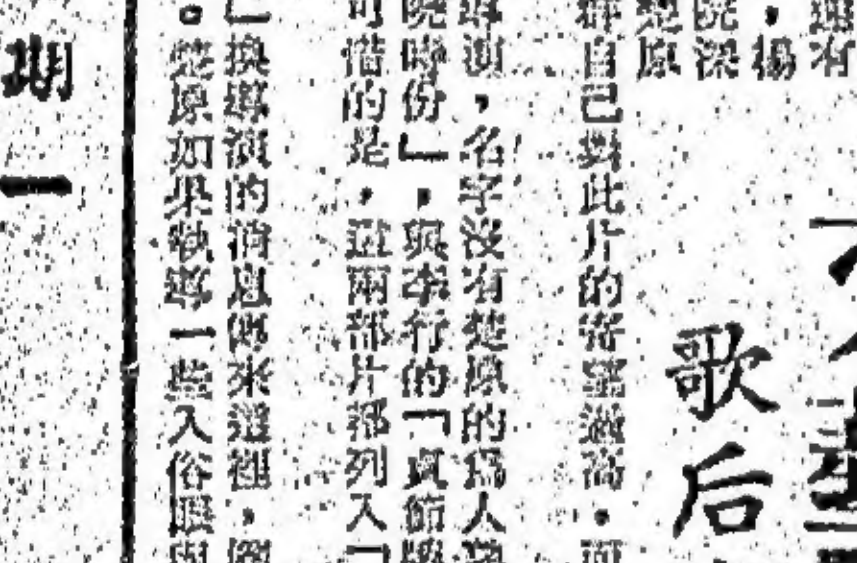 有
，楊
院深
楚原
歌后
自己對此片的寄望過高，可
導演，名字沒有楚原的為人
院時份」，與李行的「貞節牌
可惜的是，這兩部片都列入「
」換導演的消息傳來這裡，
。楚原如果執導一些入俗眼與
期一